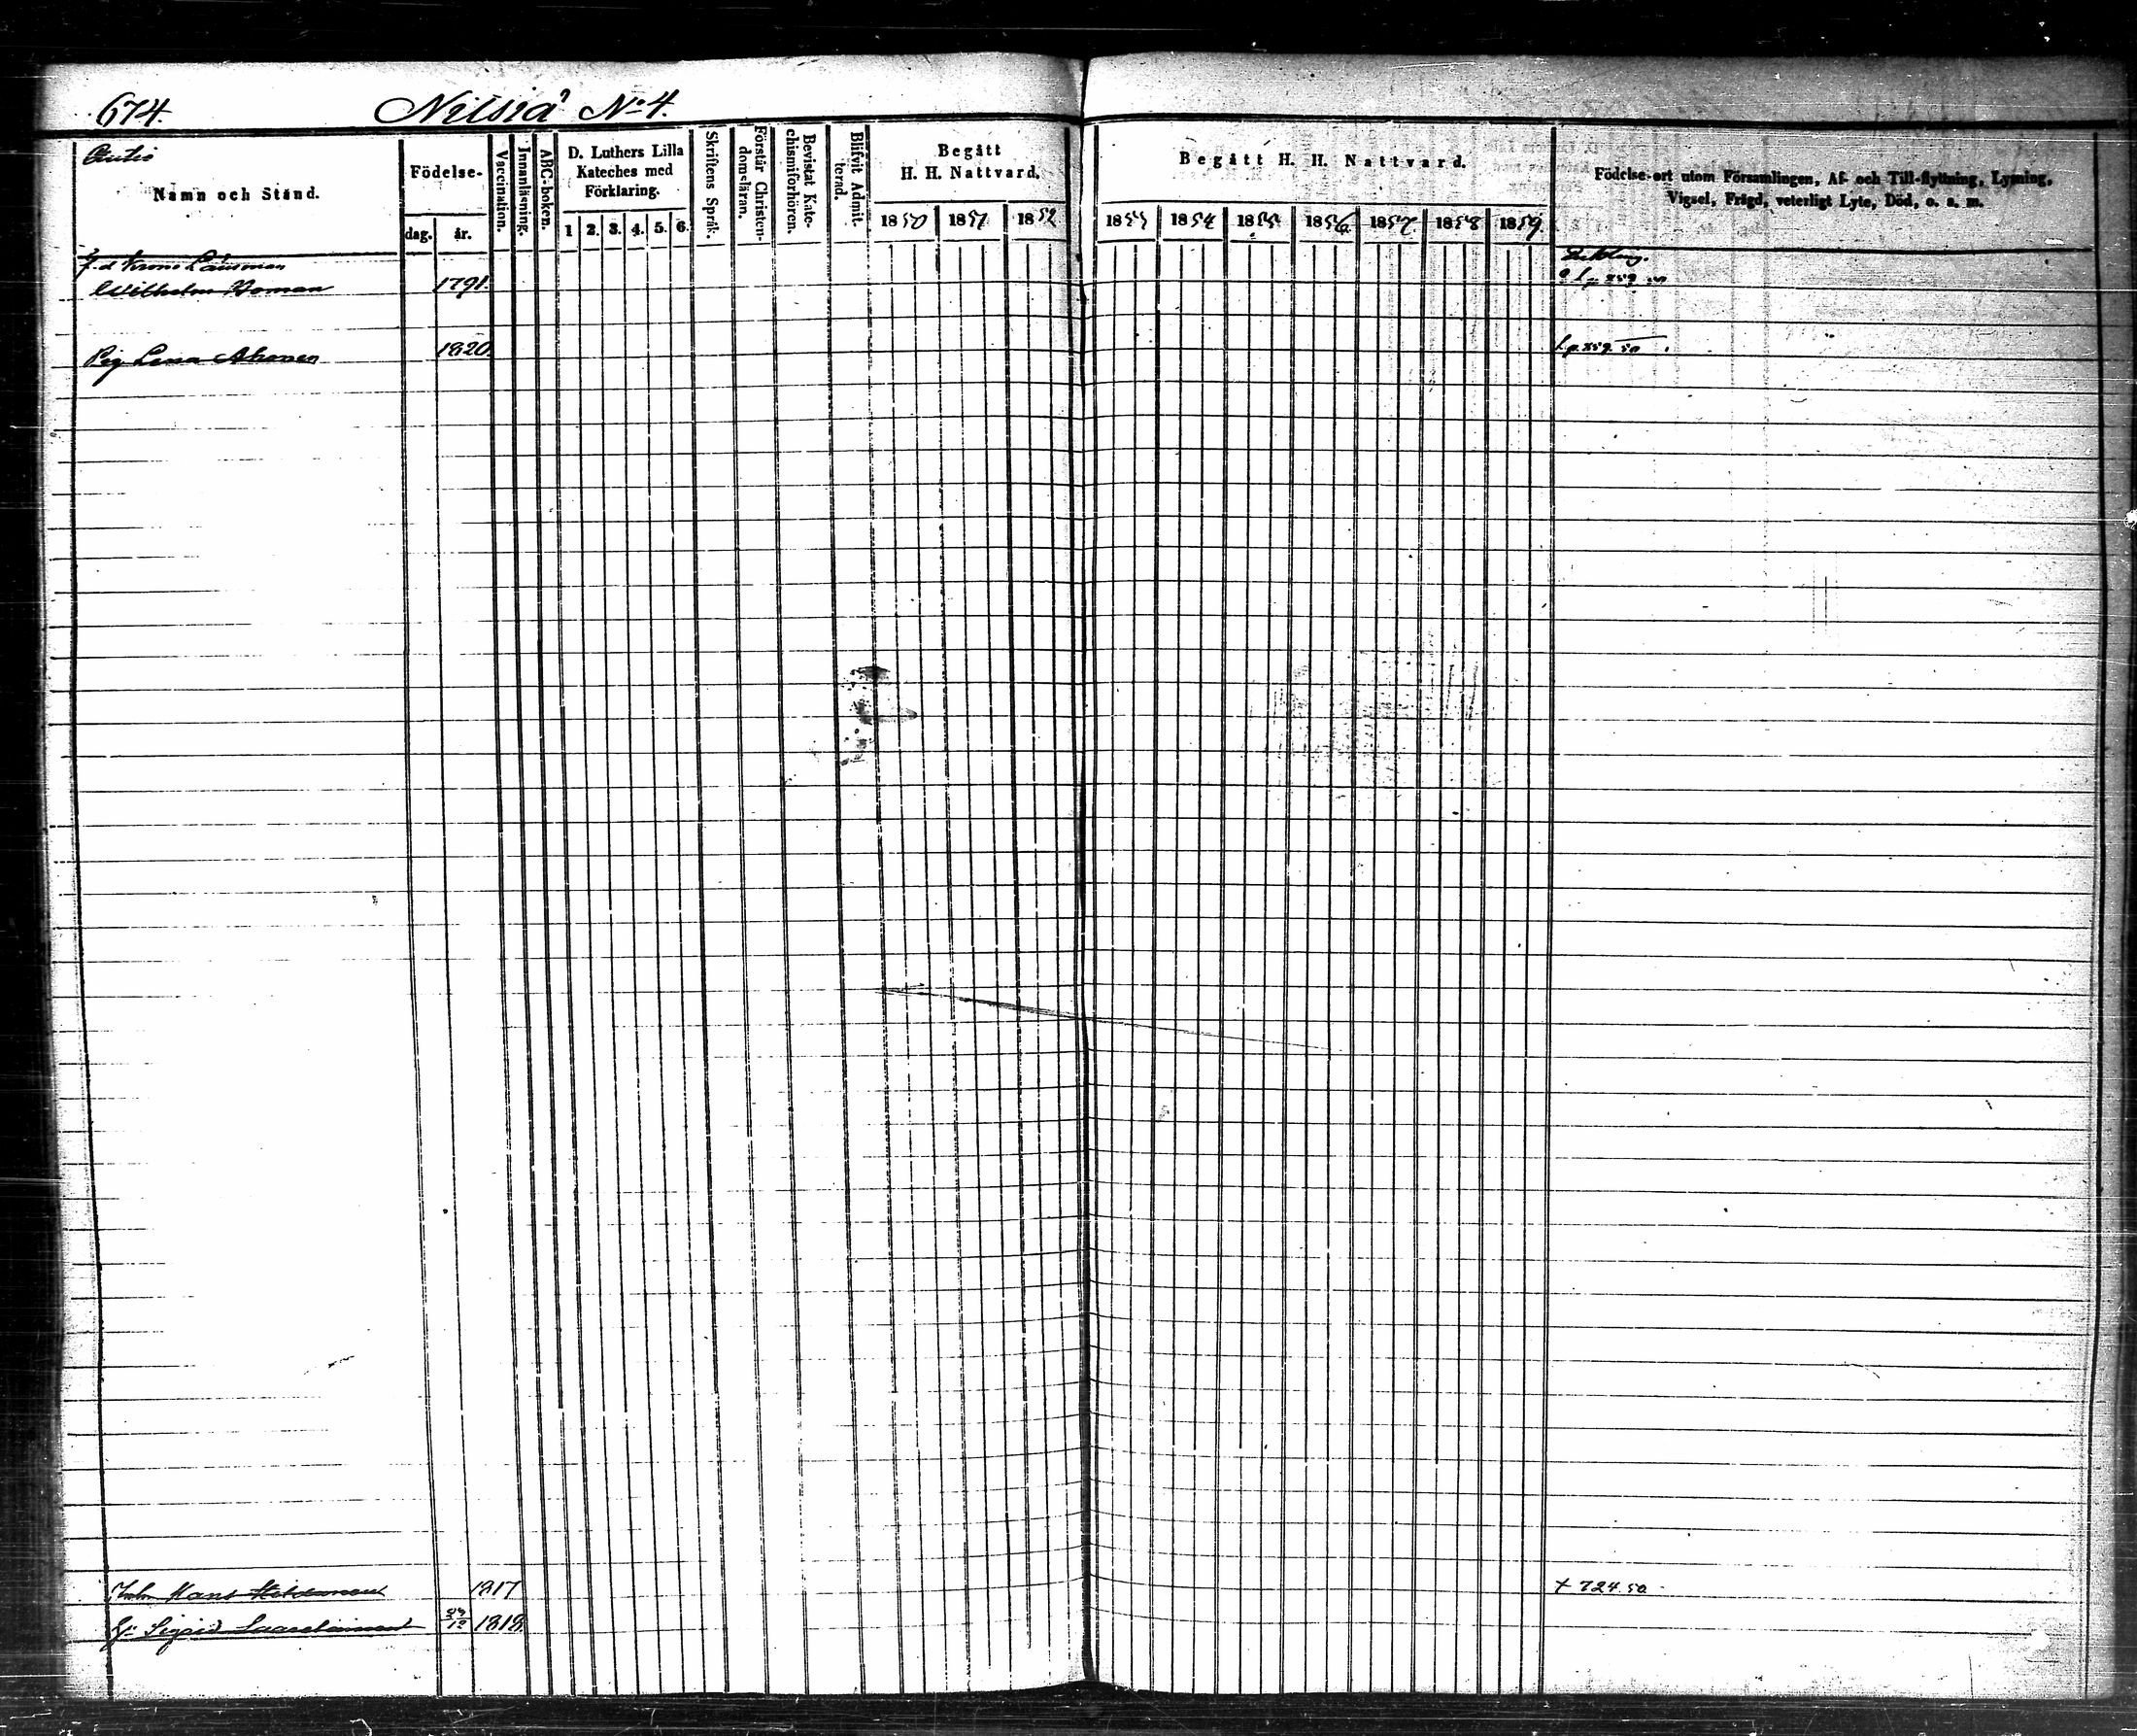 674. Nilsiä No 4.
Autio
Namn och Stånd.
Födelse-
dag. år.
Vaccination.
Innanläsning.
ABC-boken.
D. Luthers Lilla
Kateches med
Förklaring.
1 2. 3. 4. 5. 6.
Skriftens Språk.
Förstår Christen-
domsläran.
Bevistat Kate-
chismiförhören.
Blifvit Admit-
terad.
Begått
H. H. Nattvard.
1850 1851 1852
Begått H. H. Nattvard.
1853 1854 1855 1856 1857 1858 1859.
Födelse-ort utom Församlingen, Af- och Till-flyttning, Lysning,
Vigsel, Frägd, veterligt Lyte, Död, o. s. m.
f.d Krono Länsman
Wilhelm Homan 1791. p. 859. 50
Pig Lena Ahonen 1820. p. 859. 50
Hans 1817 + 724. 50
Sigrid 1818.